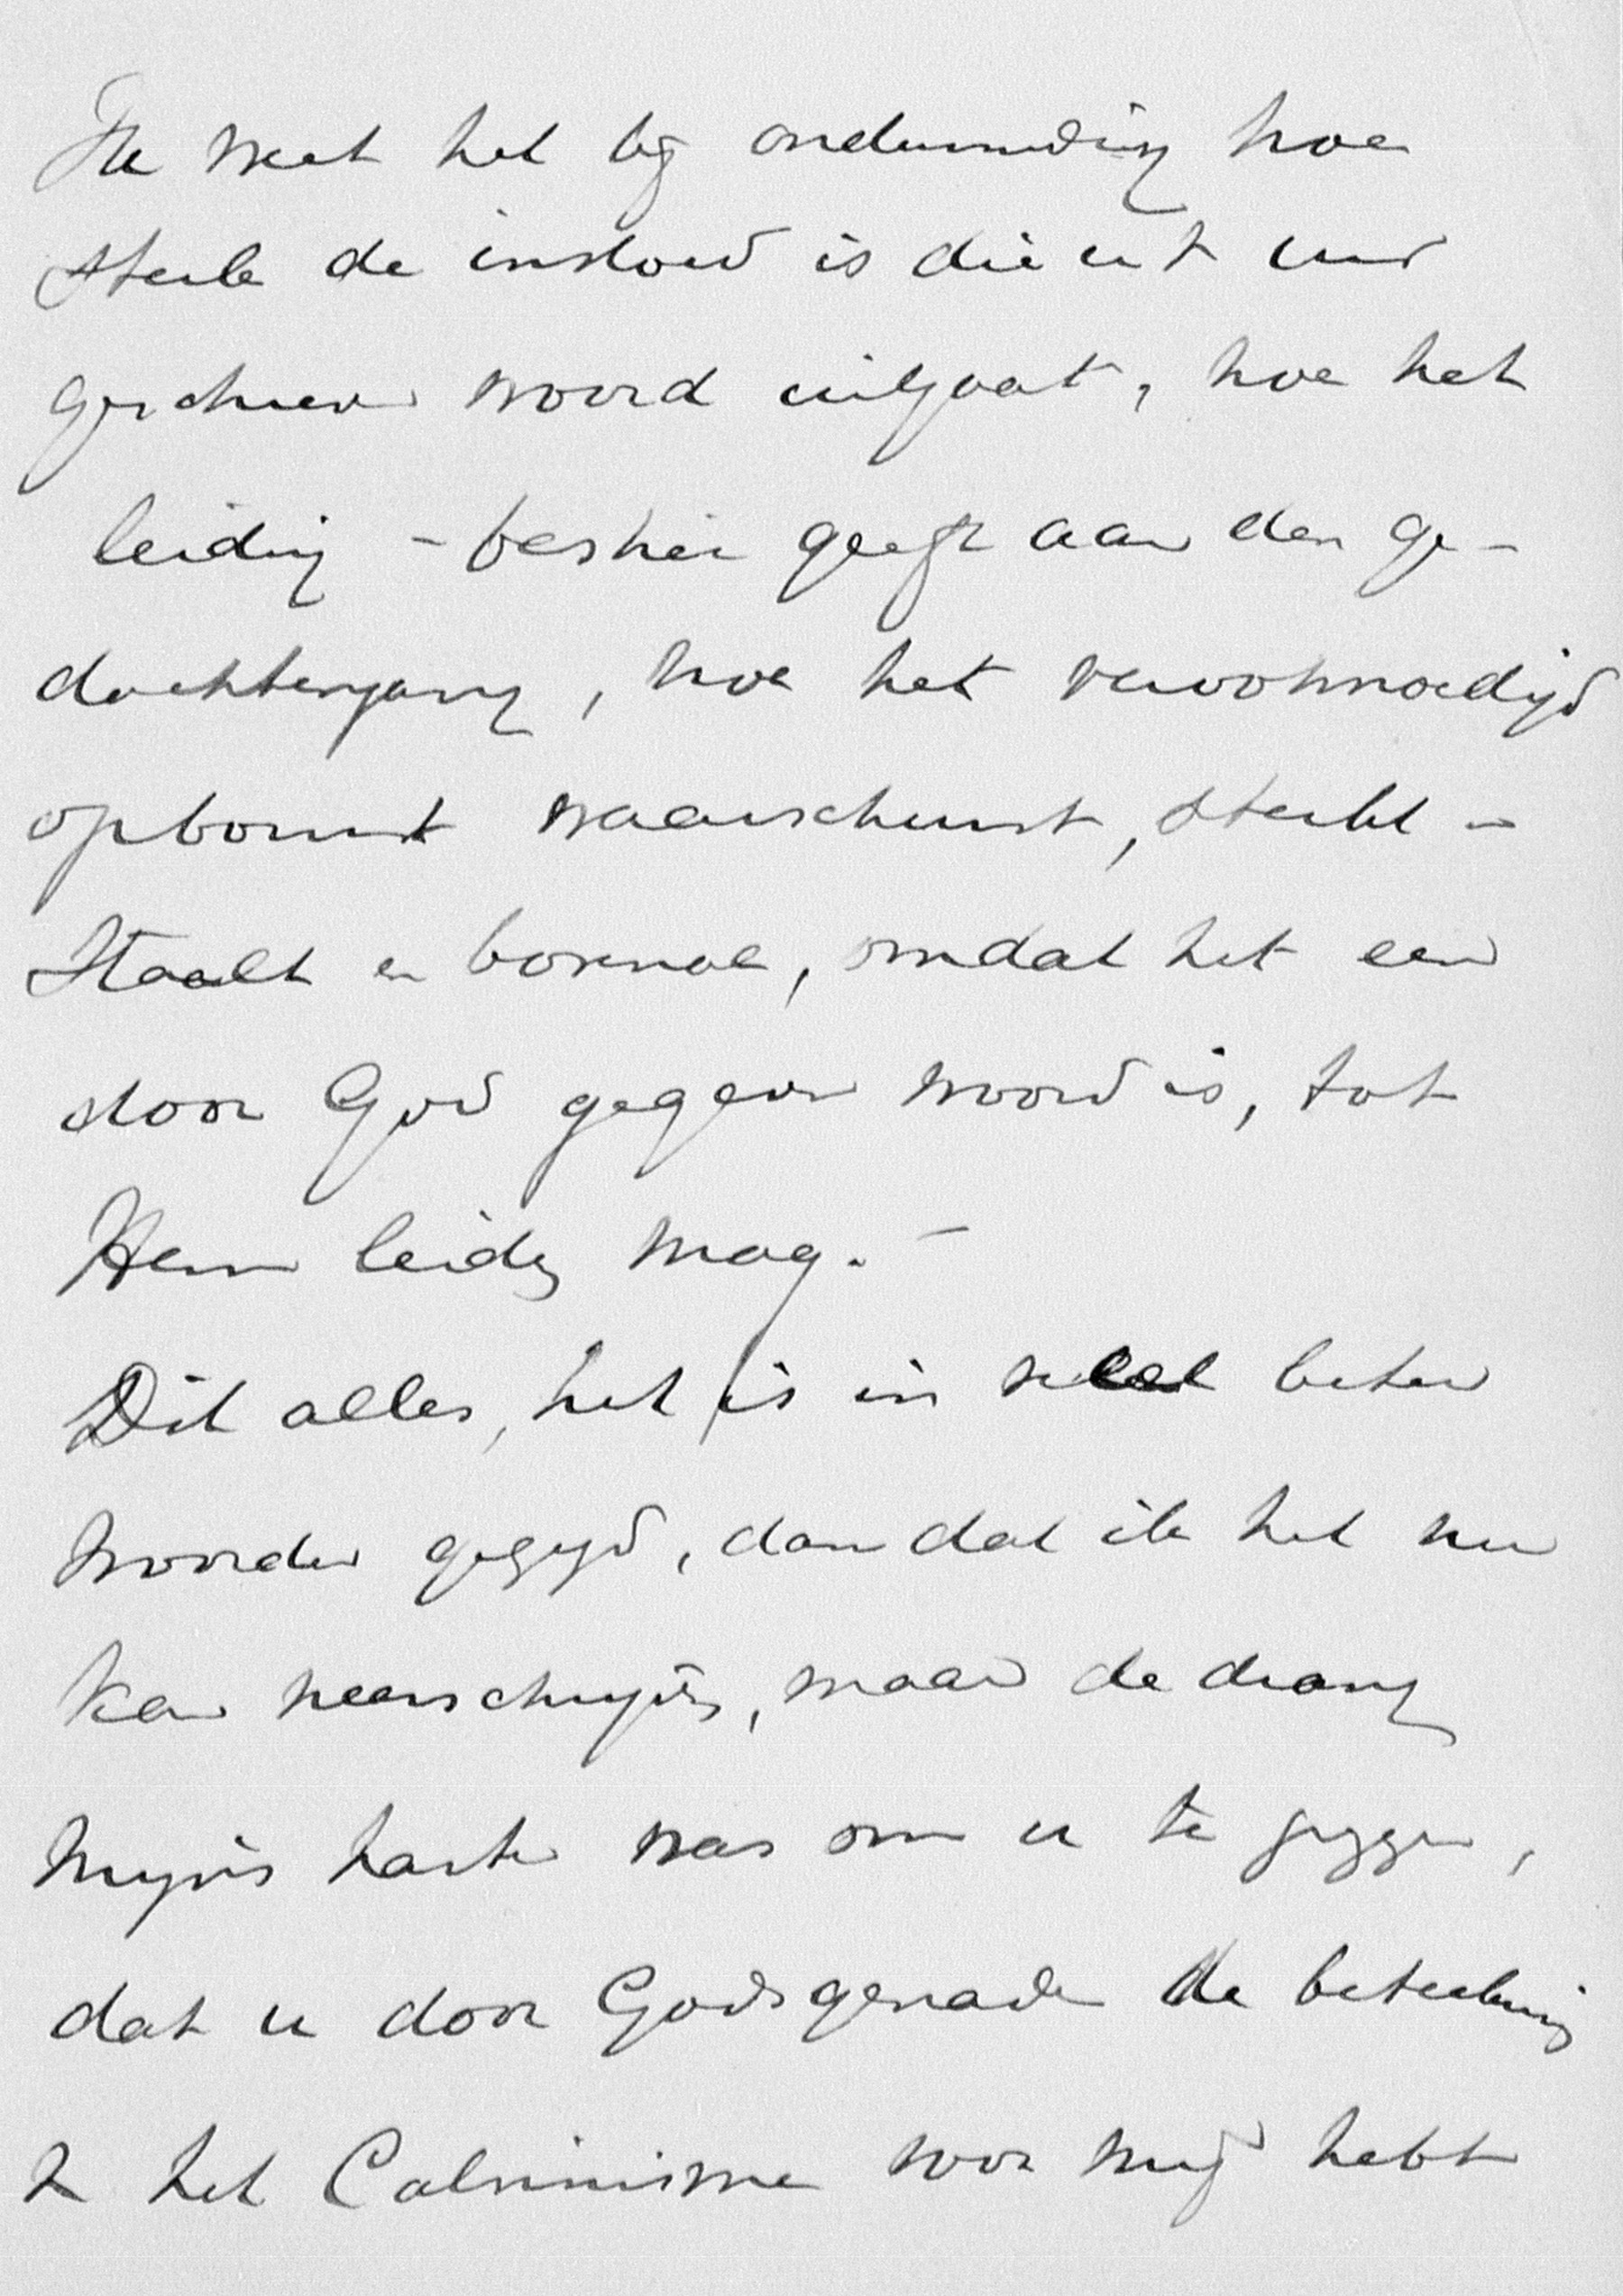 Ik weet het bij ondervinding hoe
sterk de invloed is die uit uw
geschreven woord uitgaat, hoe het
leiding - bestier geeft aan den ge-
dachtengang, hoe het verootmoedigd
opbouwt waarschuwt, sterkt -
staalt en bovenal, omdat het een
door God gegeven woord is, tot
Hem leiden mag. -
Dit alles, het is in veel beter
woorden gezegd, dan dat ik het nu
kan neerschrijven, maar de drang
mijns harten was om u te zeggen,
dat u door Gods genade de beteekenis
het Calvinisme voor mij hebt